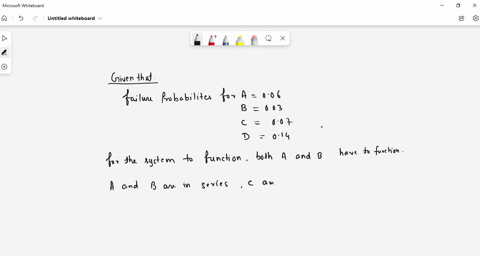 Microsoft Whiteboard
Untitled whiteboard
Given that.
failure Probabilites for A = 0.06
B = 0.03
C = 0.07
D = 0.14
for the system to function, both A and B have to function.
A and B are in series, C an